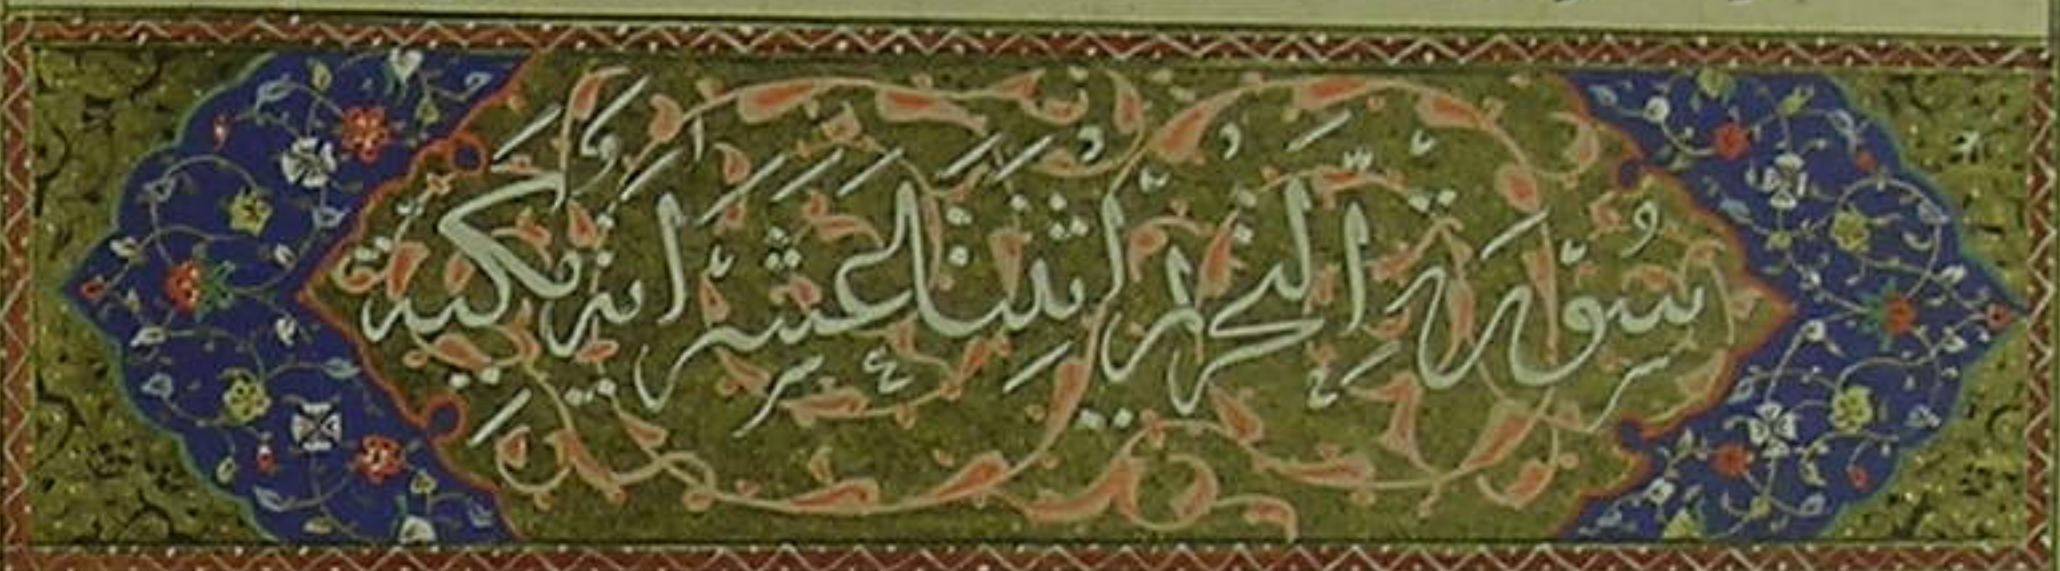 سورة التحريم اثنتا عشر اية مكية